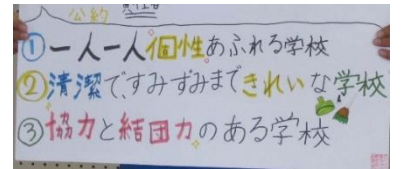 公約
①一人一人個性あふれる学校
②清潔で、すみずみまできれいな学校
③協力と結団力のある学校